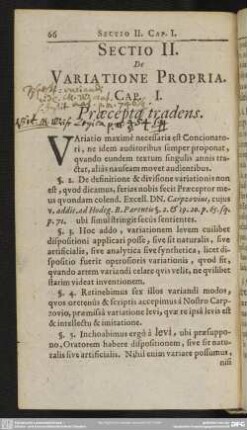 66 SECTIO II. CAP. I.
SECTIO II.
De
VARIATIONE PROPRIA.
CAP. I.
Præcepta tradens.
VAriatio maximè necessaria est Concionato-
ri, ne idem auditoribus semper proponat,
quando eundem textum singulis annis tra-
ctet, aliàs nauseam movet audientibus.
§. 2. De definitione & divisione variationis non
est, quod dicamus, seriùs nobis fecit Præceptor meus
quondam colend. Excell. DN. Carpzovius, cujus
v. addit. ad Hodeg.
p. 71. ubi simul stringit
§. 3. Hoc addo, variationem levem cuilibet
dispositioni applicari posse, sive sit naturalis, sive
artificialis, sive analytica sive synthetica, licet di-
spositio fuerit operosioris variationis, quod fit,
quando artem variandi celare quis velit, ne quilibet
statim videat inventionem.
§. 4. Retinebimus sex illos variandi modos,
quos oretenùs & scriptis accepimus à Nostro Carp-
zovio, præmissâ variatione levi, quæ re ipsâ levis est
& intellectu & imitatione.
§. 5. Inchoabimus ergò à levi, ubi præsuppo-
no, Oratorem habere dispositionem, sive sit natu-
ralis sive artificialis. Nihil enim variare possumus,
nisi